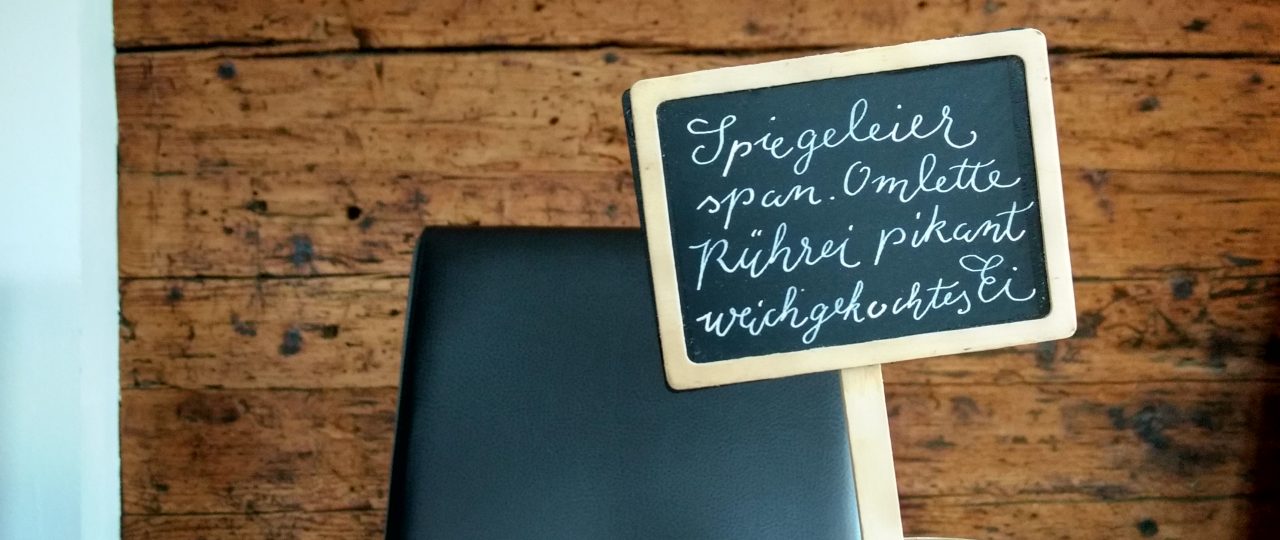 Spiegeleier
span. Omlette
Rührei pikant
weichgekochtes Ei